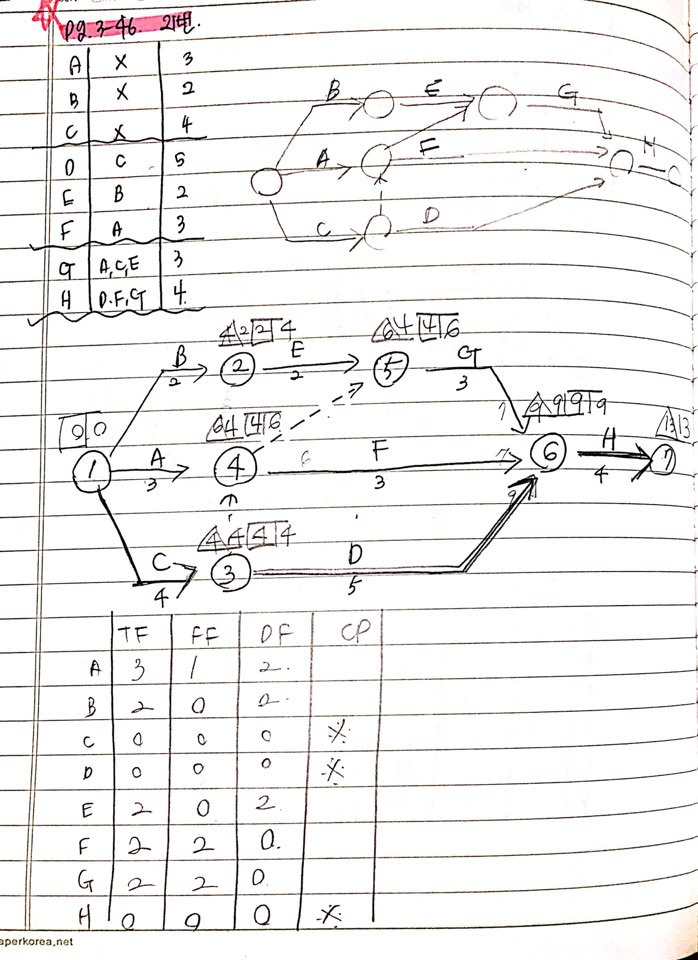 Pg 3-46. 21번.
A X 3
B X 2
C X 4
D C 5
E B 2
F A 3
G A,C,E 3
H D.F,G 4
B E G
A F H
C D
B 2 E 2 G 3
0 0
1 A 3 4 F 3 6 H 4 7
2 5
C 4 3 D 5
4 2 2 4
6 4 4 6
6 4 4 6
4 4 4 4
9 9 9
13 13
7
9
TF FF DF CP
A 3 1 2.
B 2 0 2.
C 0 0 0 ※
D 0 0 0 ※
E 2 0 2
F 2 2 0.
G 2 2 0
H 0 0 0 ※
aperkorea.net